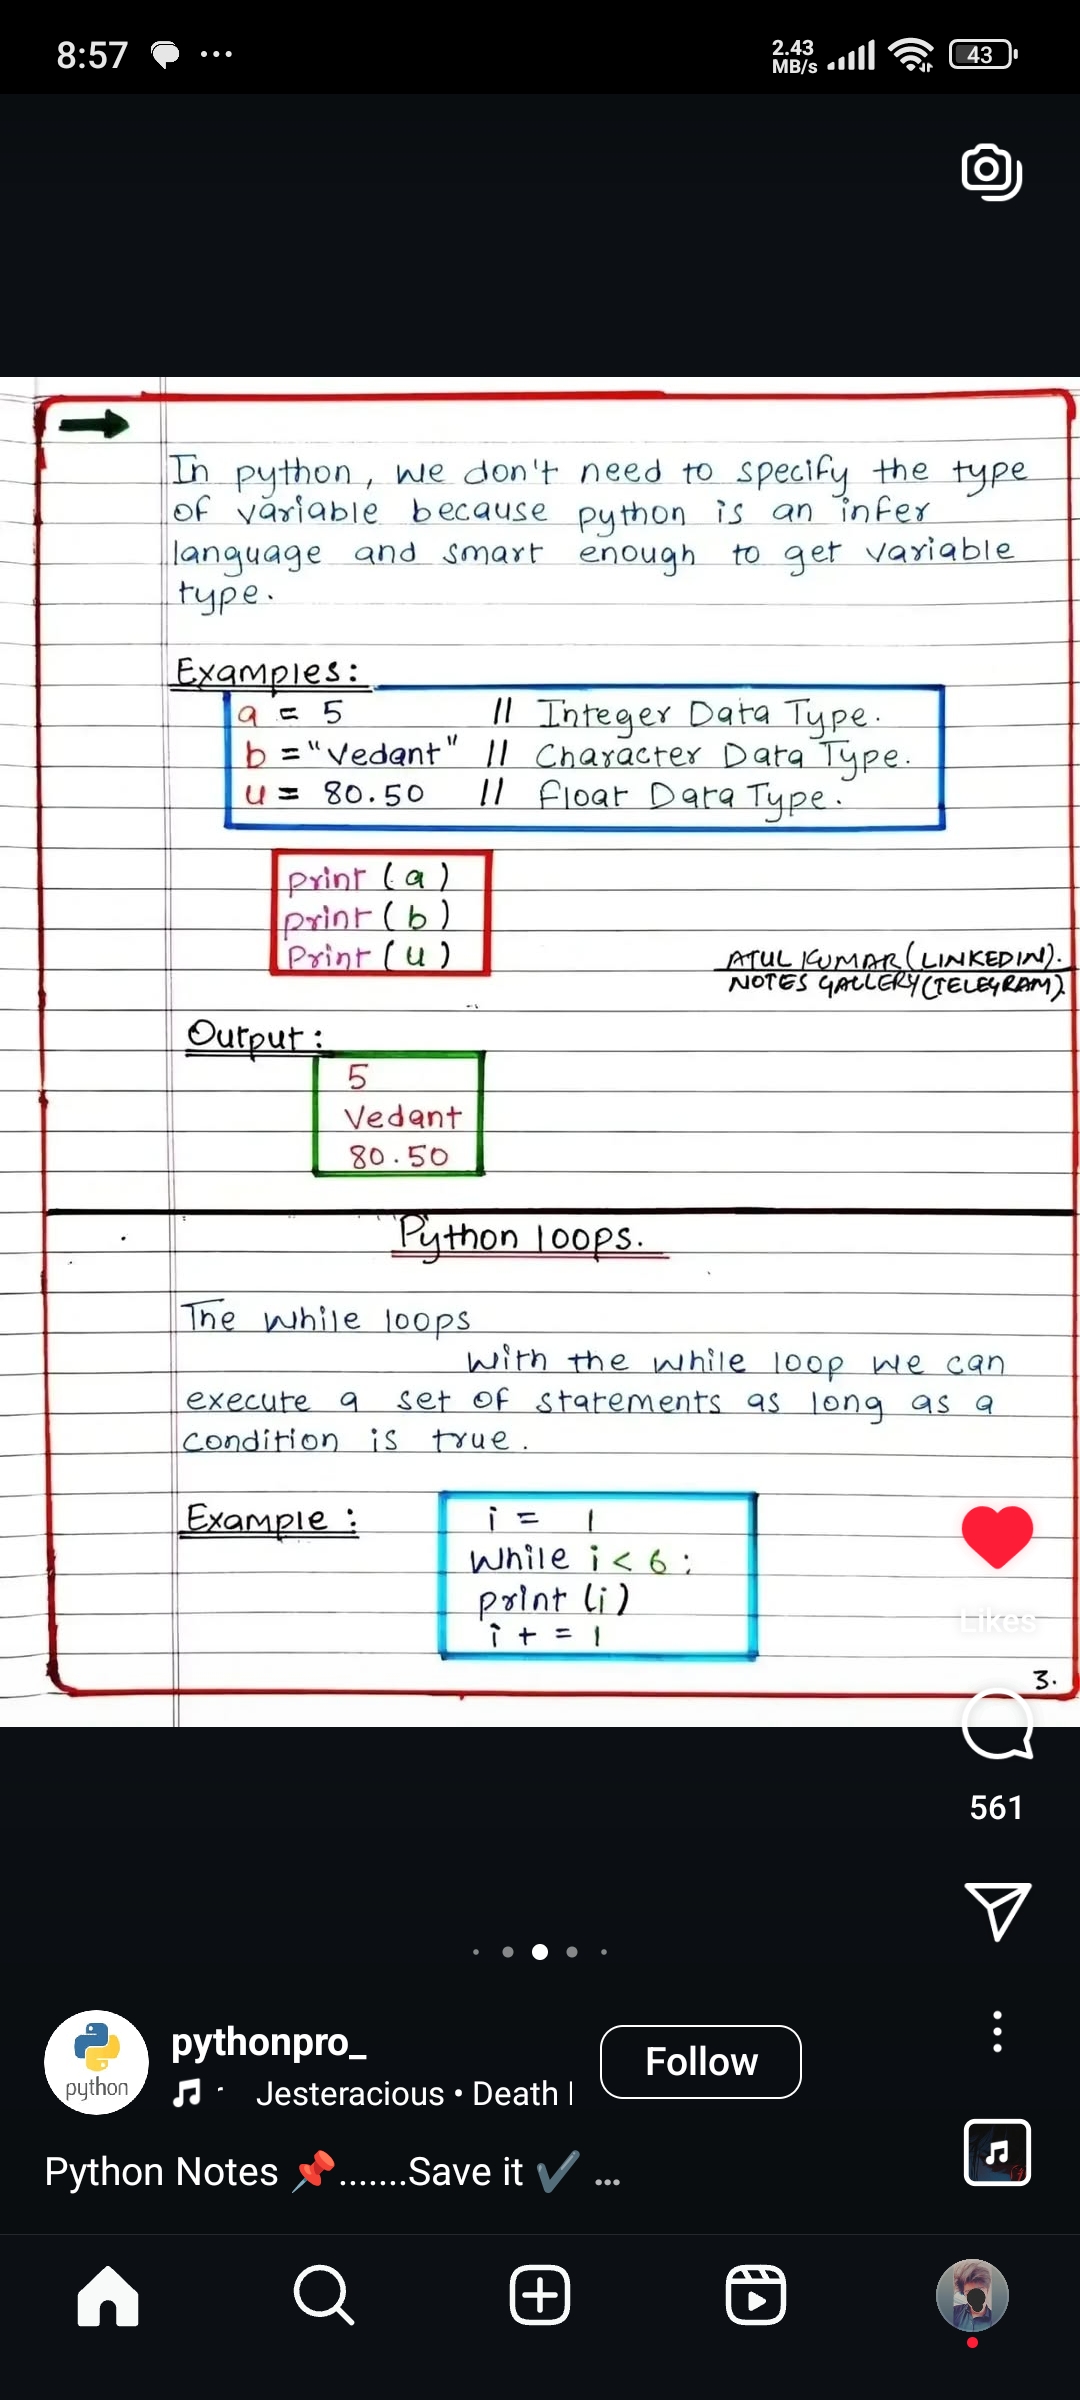 8:57 ...
2.43
MB/s
43
In python, we don't need to specify the type
of variable because python is an infer
language and smart enough to get variable
type.
Examples:
a = 5 // Integer Data Type.
b = "Vedant" // Character Data Type.
u = 80.50 // Float Data Type.
print (a)
print (b)
Print (u)
ATUL KUMAR (LINKEDIN).
NOTES GALLERY (TELEGRAM).
Output:
5
Vedant
80.50
Python loops.
The while loops
With the while loop we can
execute a set of statements as long as a
condition is true.
Example:
i = 1
While i < 6 :
print (i)
i + = 1
Likes
3.
561
pythonpro_
Follow
python
Jesteracious • Death
Python Notes 📌.......Save it ✔️ ...